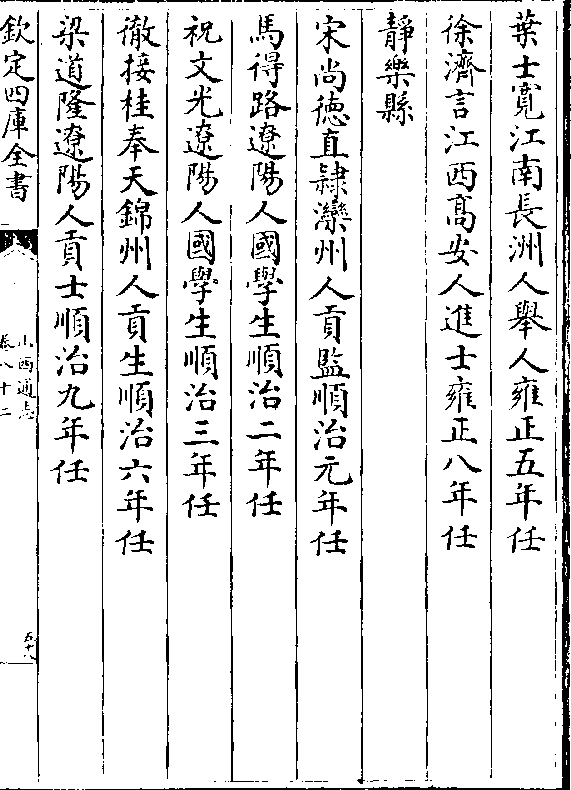 葉士寛江南長洲人舉人雍正五年任
徐濟言江西髙安人進士雍正八年任
靜樂縣
宋尚徳直隸灤州人貢監順治元年任
馬得路遼陽人國學生順治二年任
祝文光遼陽人國學生順治三年任
徹接桂奉天錦州人貢生順治六年任
梁道隆遼陽人貢士順治九年任
欽定四庫全書
山西通志
卷八十二
五十八